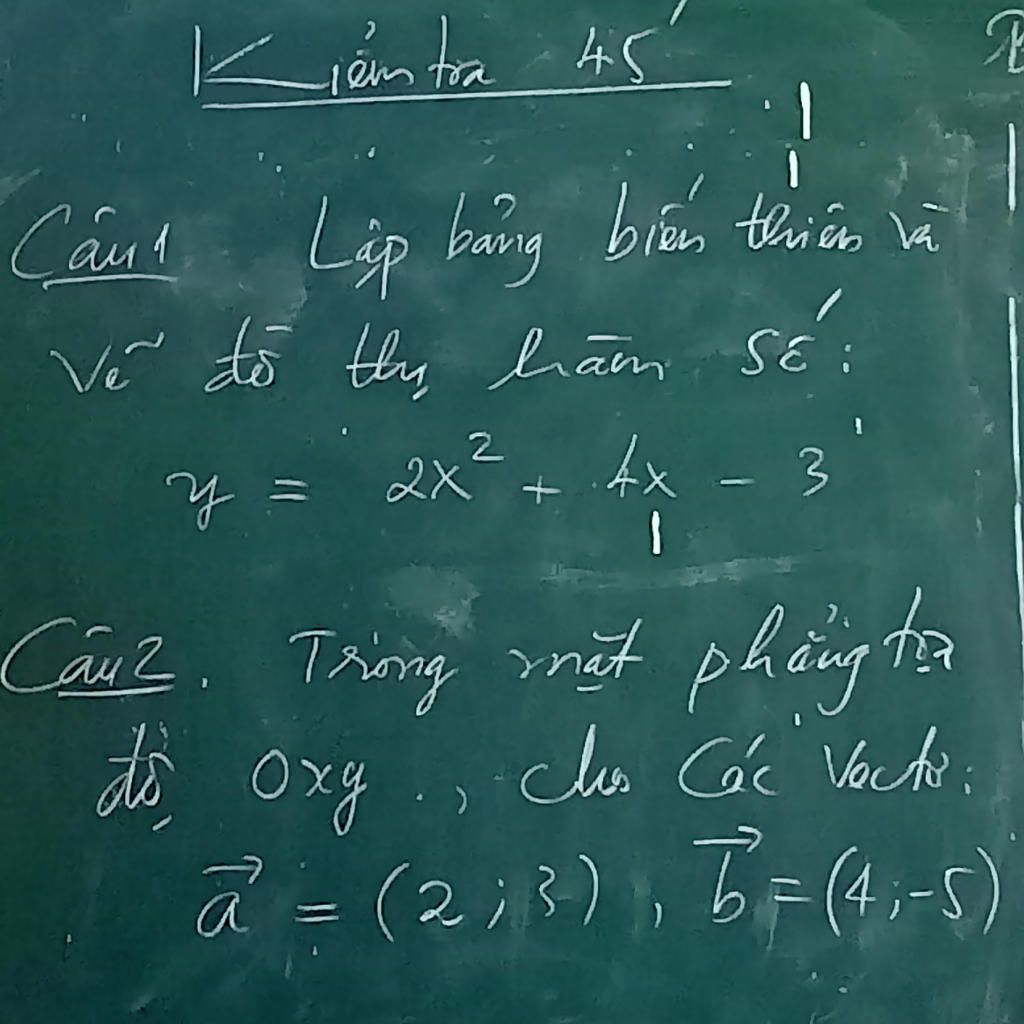 Kiểm tra 45'
Câu 1 Lập bảng biến thiên và
vẽ đồ thị hàm số:
y = 2x² + 4x - 3
Câu 2. Trong mặt phẳng tọa
độ Oxy., cho các Vectơ:
a⃗ = (2;3), b⃗ = (4;-5)